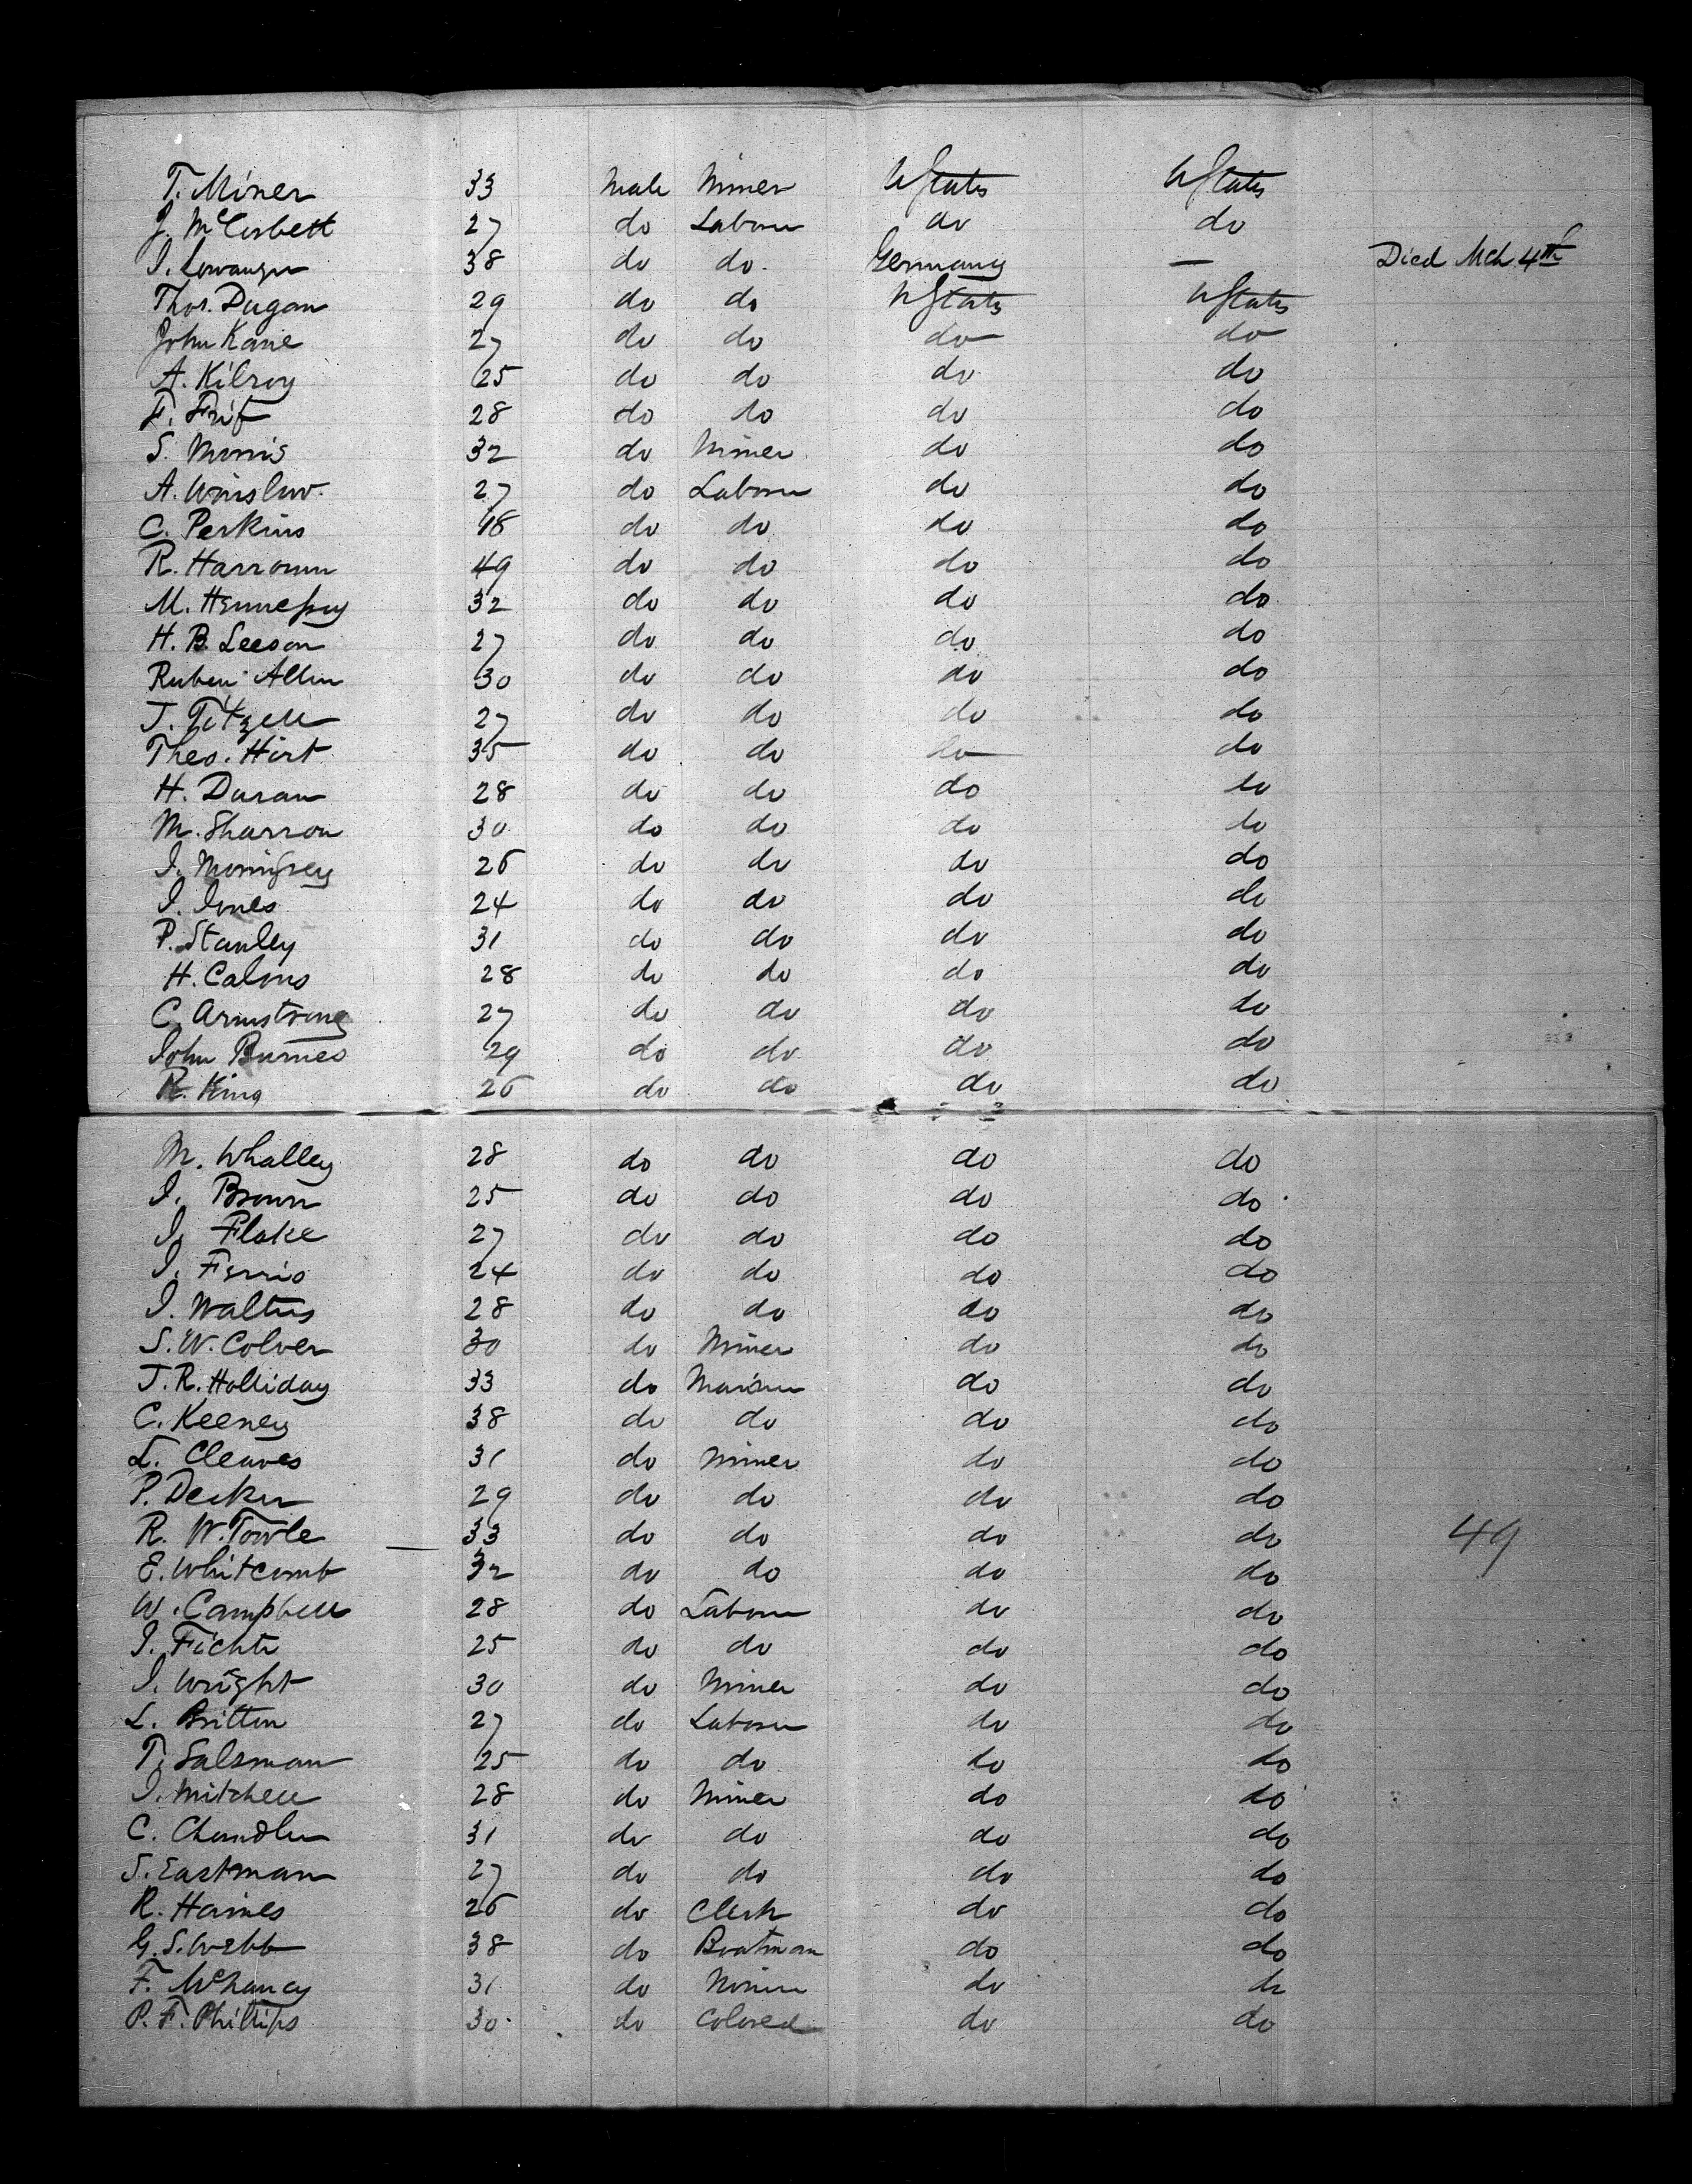 T. Miner 33 Male Miner UStates UStates
J. McCorbett 27 do Laborer do do
I. Lowanger 38 do do Germany — Died Mch 4th
Thos. Dugan 29 do do UStates UStates
John Kane 27 do do do do
A. Kilroy 25 do do do do
F. 28 do do do do
S. Morris 32 do Miner do do
A. Winslow 27 do Laborer do do
C. Perkins 18 do do do do
R. Harroun 49 do do do do
M. Hennessy 32 do do do do
H. B. Leeson 27 do do do do
Ruben Allen 30 do do do do
J. Titzell 27 do do do do
Theo. Hirt 35 do do do do
H. Duran 28 do do do do
M. Sharron 30 do do do do
I. 26 do do do do
I. Jones 24 do do do do
P. Stanley 31 do do do do
H. Calons 28 do do do do
C. Armstrong 27 do do do do
John Burnes 29 do do do do
R. King 26 do do do do
M. Whalley 28 do do do do
I. Brown 25 do do do do
I. Flake 27 do do do do
I. Ferris 24 do do do do
I. Walters 28 do do do do
S. W. Colver 30 do Miner do do
J. R. Holliday 33 do Mariner do do
C. Keeney 38 do do do do
L. Cleaves 31 do Miner do do
P. Decker 29 do do do do
R. W. Towle — 33 do do do do 49
E. Whitcomb 32 do do do do
W. Campbell 28 do Laborer do do
I. Fichte 25 do do do do
I. Wright 30 do Miner do do
L. Britton 27 do Laborer do do
T. Salsman 25 do do do do
I. Mitchell 28 do Miner do do
C. Chandler 31 do do do do
S. Eastman 27 do do do do
R. Haines 26 do Clerk do do
G. S. Webb 38 do Boatman do do
F. McChancy 31 do Miner do do
P. F. Phillips 30 do Colored do do